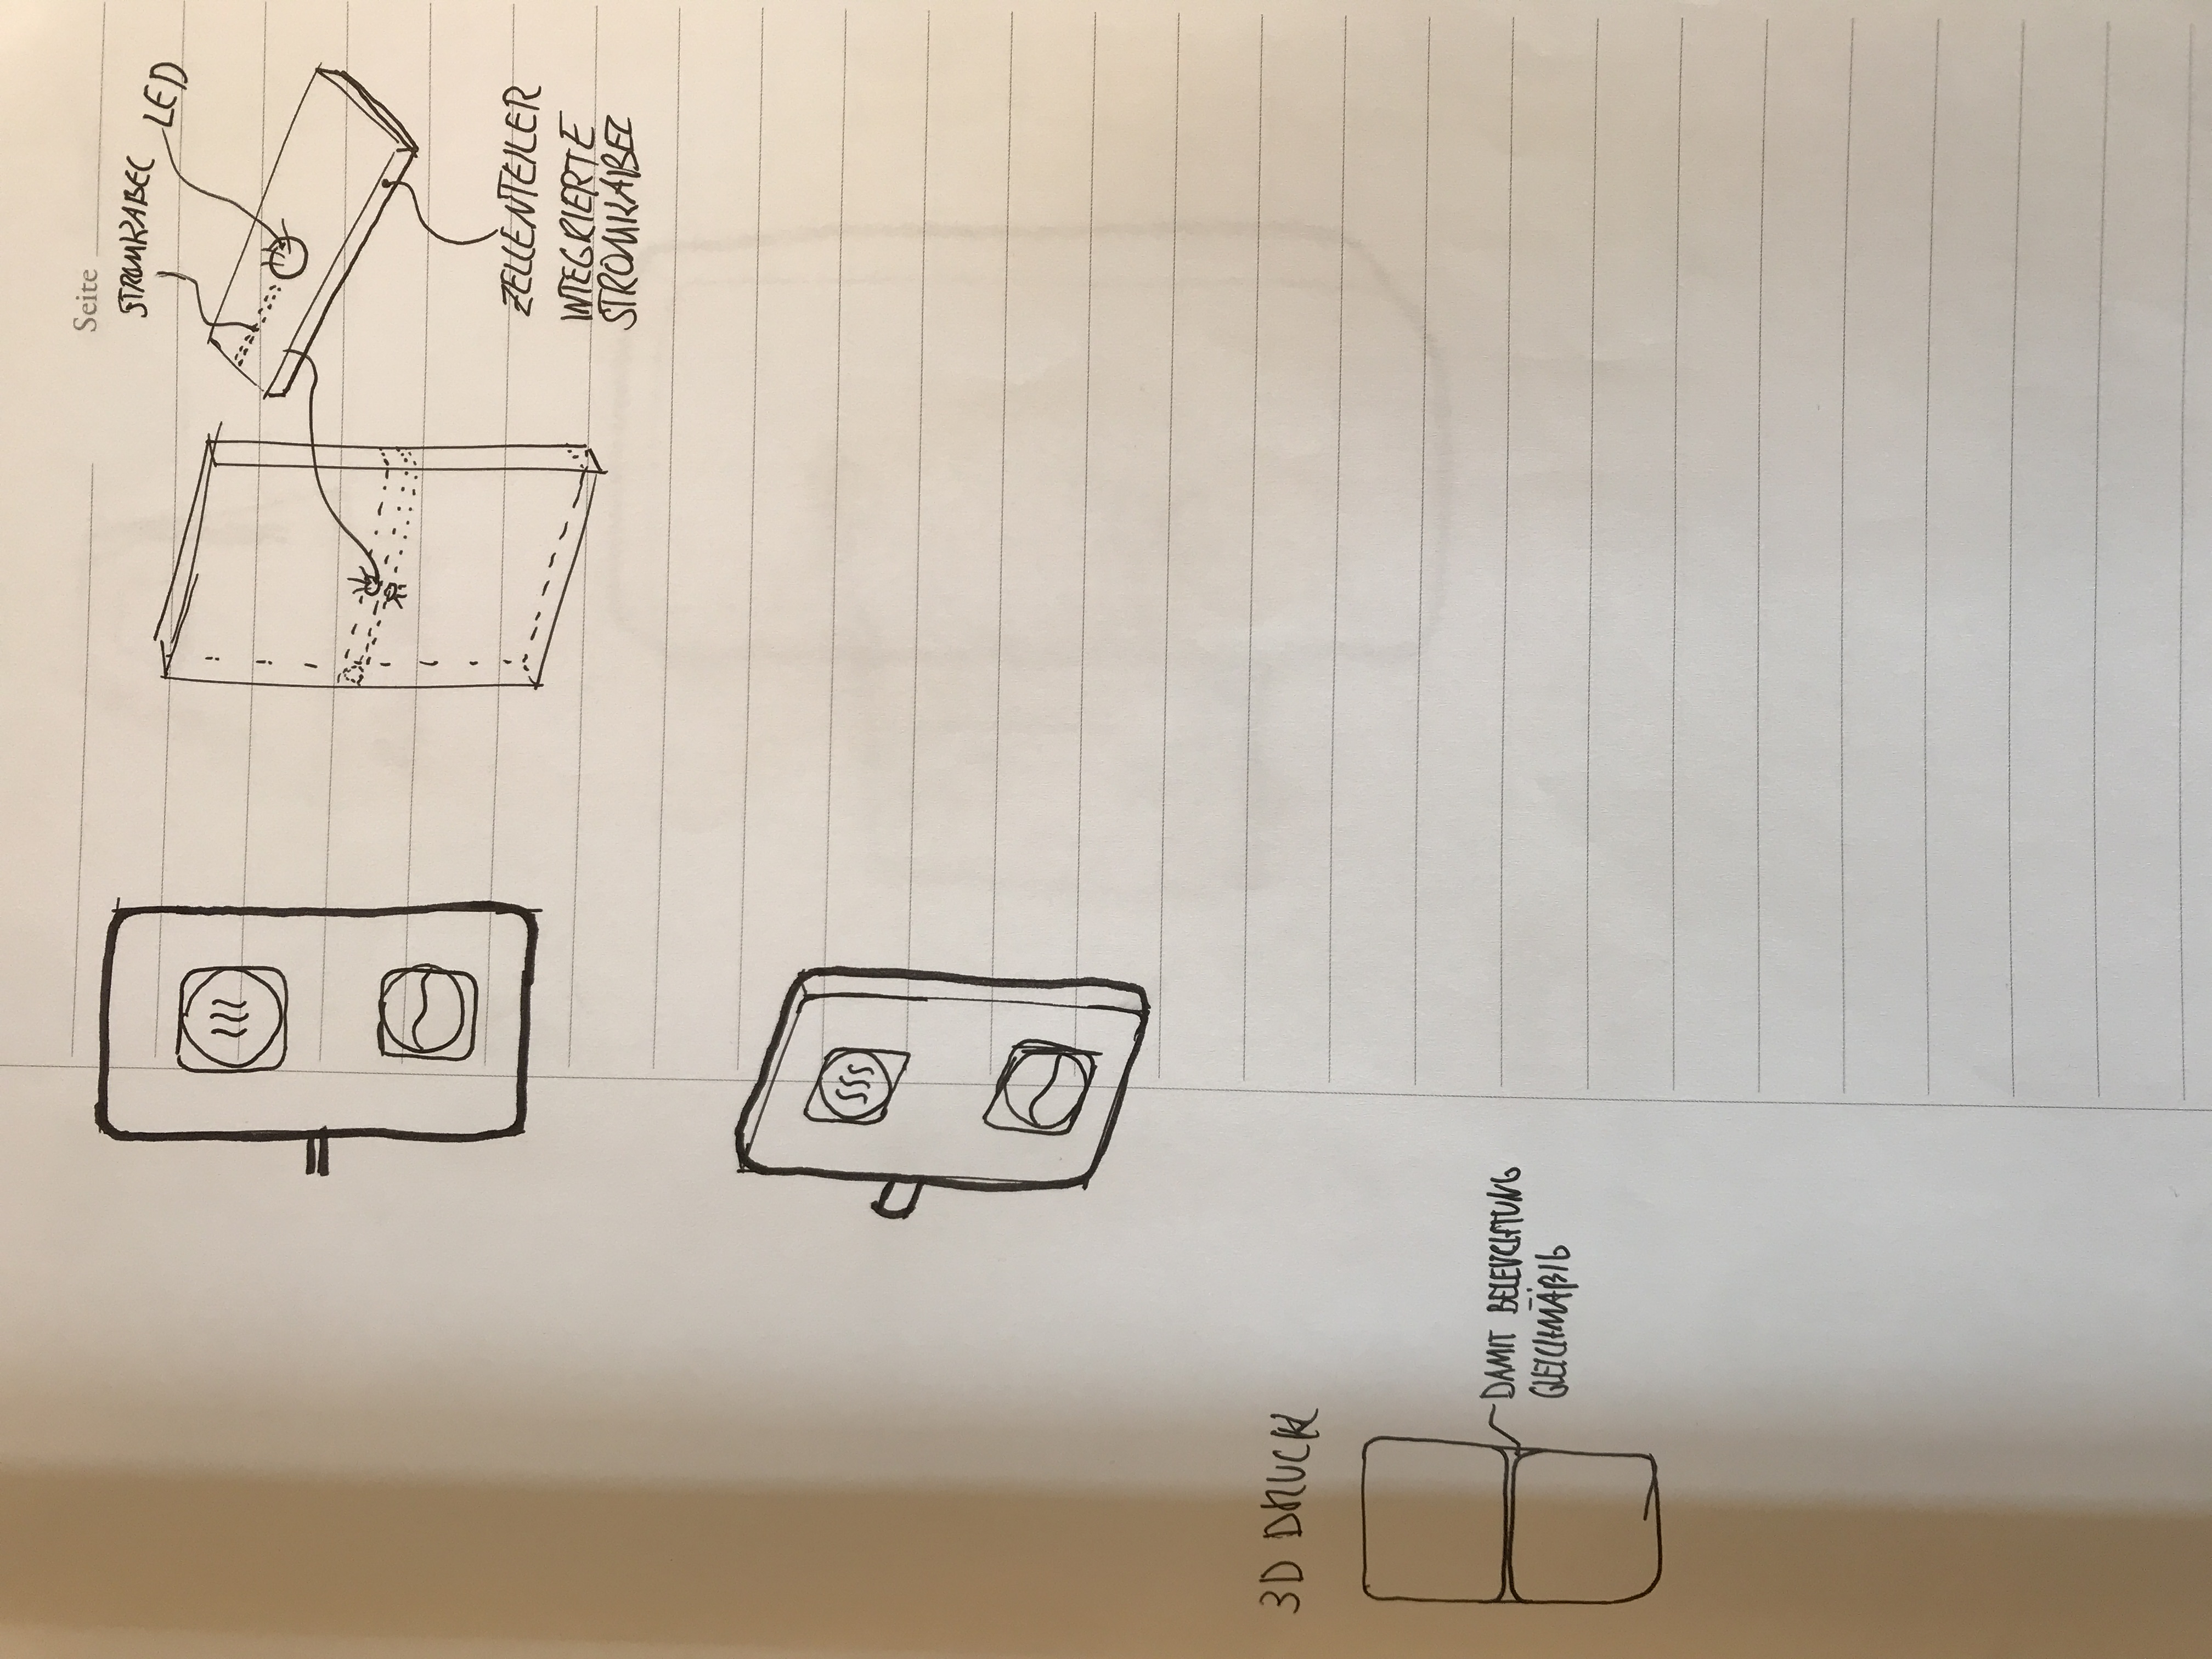 Seite
STROMKABEL
LED
ZELLENTEILER
INTEGRIERTE
STROMKABEL
3D DRUCK
DAMIT BELEUCHTUNG
GLEICHMÄßIG